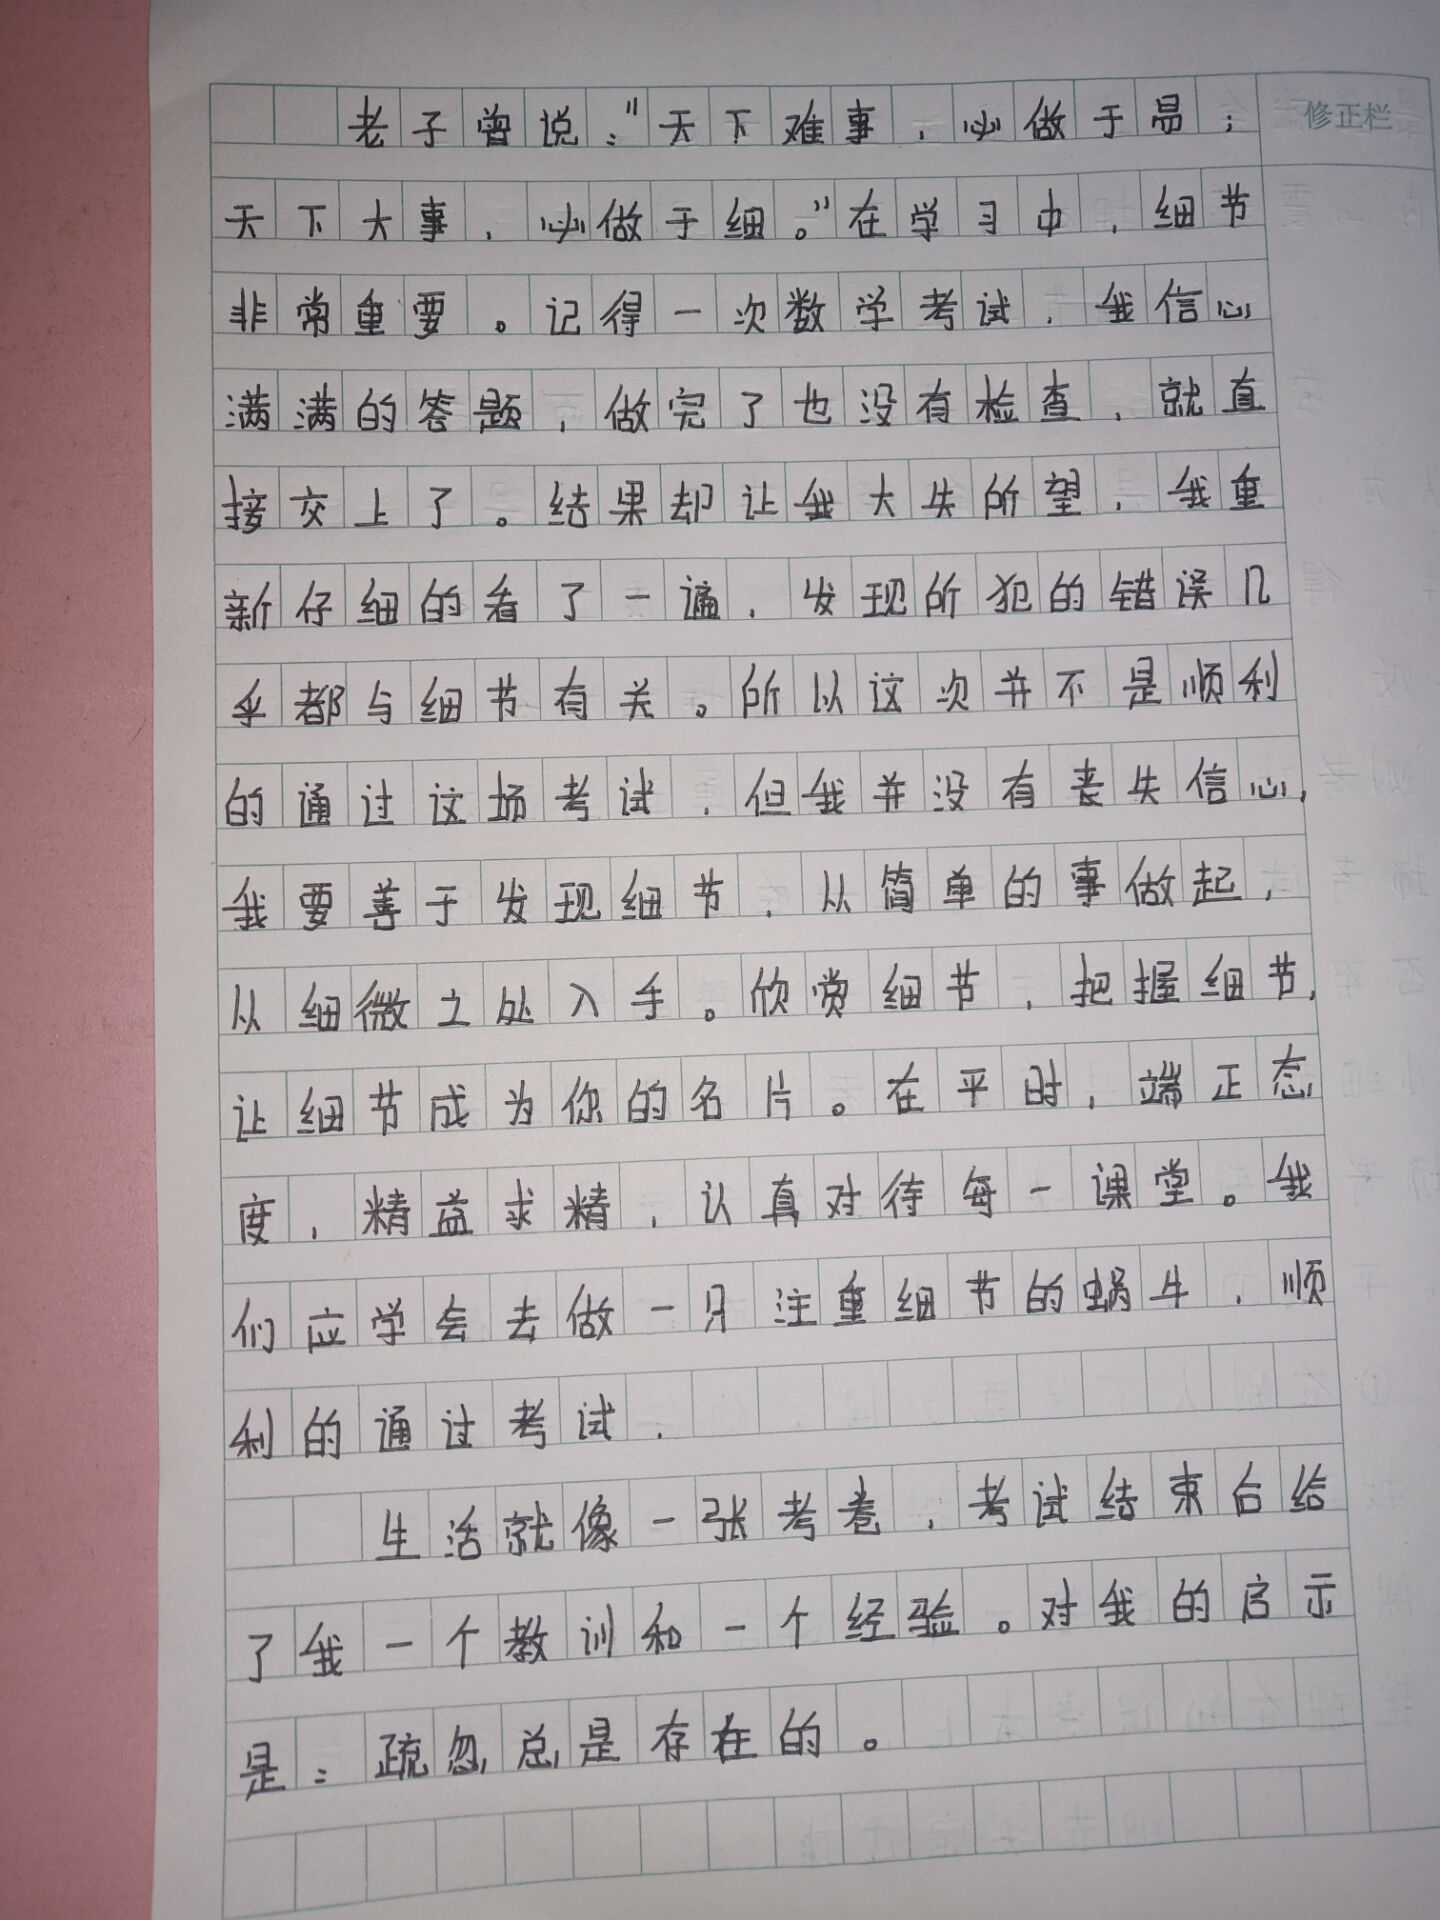 修正栏
老子曾说:"天下难事,必做于易;
天下大事,必做于细。"在学习中,细节
非常重要。记得一次数学考试,我信心
满满的答题,做完了也没有检查,就直
接交上了。结果却让我大失所望,我重
新仔细的看了一遍,发现所犯的错误几
乎都与细节有关。所以这次并不是顺利
的通过这场考试,但我并没有丧失信心,
我要善于发现细节,从简单的事做起,
从细微之处入手。欣赏细节,把握细节,
让细节成为你的名片。在平时,端正态
度,精益求精,认真对待每一课堂。我
们应学会去做一只注重细节的蜗牛,顺
利的通过考试.
生活就像一张考卷,考试结束台给
了我一个教训和一个经验。对我的启示
是:疏忽总是存在的。